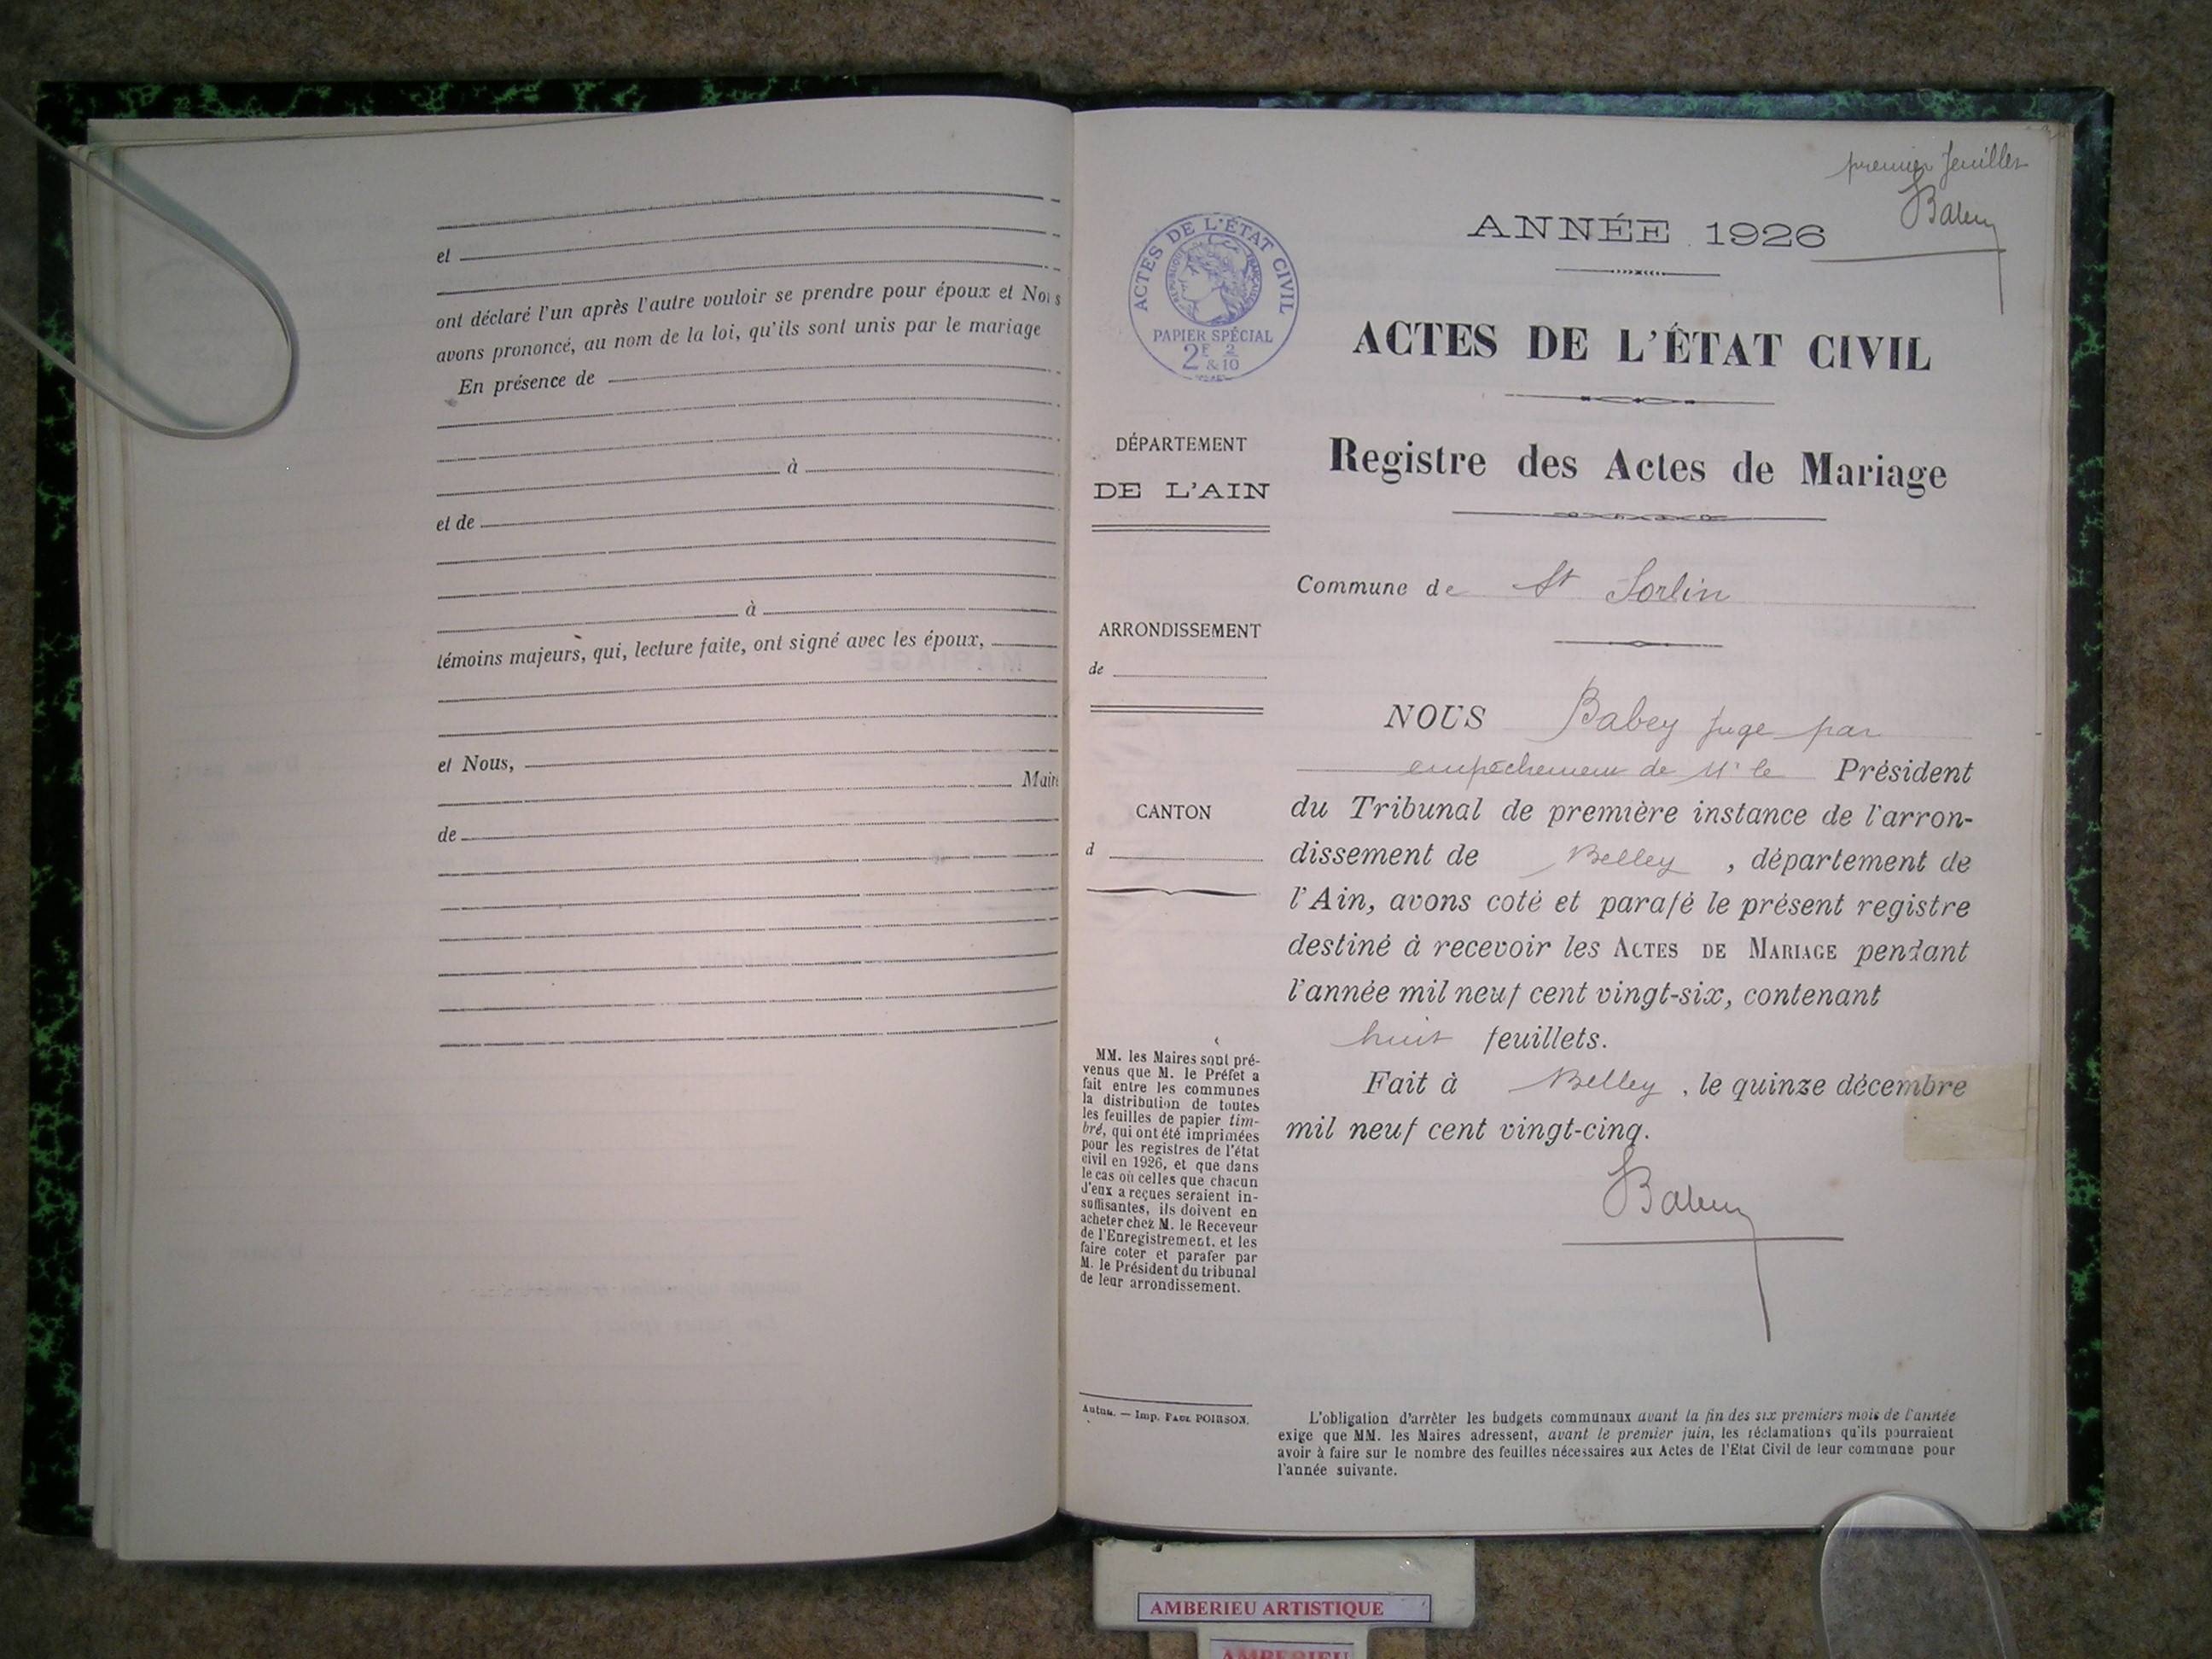 et
ont déclaré l'un après l'autre vouloir se prendre pour époux et Nous
avons prononcé, au nom de la loi, qu'ils sont unis par le mariage
En présence de
à
et de
à
témoins majeurs, qui, lecture faite, ont signé avec les époux,
et Nous,
Maire
de
premier feuillet
Babey
ANNÉE 1926
ACTES DE L'ÉTAT CIVIL
RÉPUBLIQUE FRANÇAISE
PAPIER SPÉCIAL
2F 2
&10
ACTES DE L'ÉTAT CIVIL
Registre des Actes de Mariage
DÉPARTEMENT
DE L'AIN
ARRONDISSEMENT
de
CANTON
d
MM. les Maires sont pré-
venus que M. le Préfet a
fait entre les communes
la distribution de toutes
les feuilles de papier tim-
bré, qui ont été imprimées
pour les registres de l'état
civil en 1926, et que dans
le cas où celles que chacun
d'eux a reçues seraient in-
suffisantes, ils doivent en
acheter chez M. le Receveur
de l'Enregistrement. et les
faire coter et parafer par
M. le Président du tribunal
de leur arrondissement.
Autun. — Imp. PAUL POIRSON.
Commune de St Sorlin
NOUS Babey juge par
empêchement de Mr le Président
du Tribunal de première instance de l'arron-
dissement de Belley, département de
l'Ain, avons coté et parafé le présent registre
destiné à recevoir les ACTES DE MARIAGE pendant
l'année mil neuf cent vingt-six, contenant
huit feuillets.
Fait à Belley, le quinze décembre
mil neuf cent vingt-cinq.
Babey
L'obligation d'arrêter les budgets communaux avant la fin des six premiers mois de l'année
exige que MM. les Maires adressent, avant le premier juin, les réclamations qu'ils pourraient
avoir à faire sur le nombre des feuilles nécessaires aux Actes de l'Etat Civil de leur commune pour
l'année suivante.
AMBERIEU ARTISTIQUE
AMBERIEU